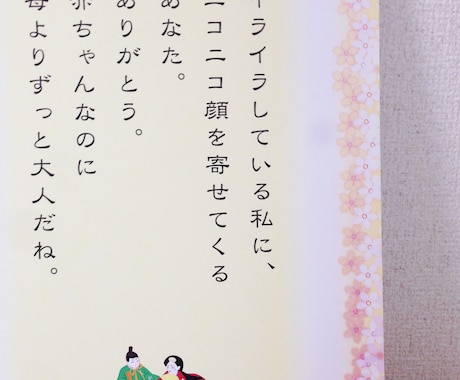 イライラしている私に、
ニコニコ顔を寄せてくる
あなた。
ありがとう。
赤ちゃんなのに
母よりずっと大人だね。